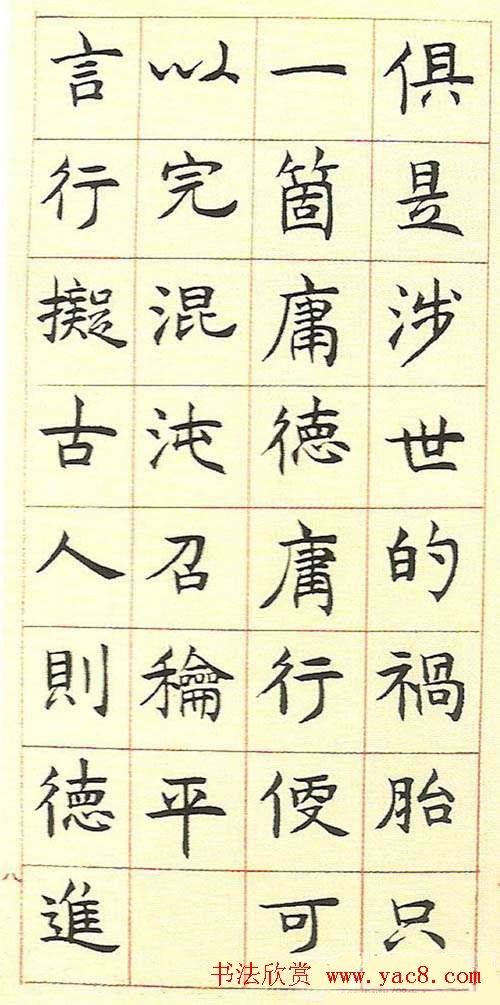 俱是涉世的禍胎只
一箇庸德庸行便可
以完混沌召穐平
言行擬古人則德進
八
书法欣赏 www.yac8.com